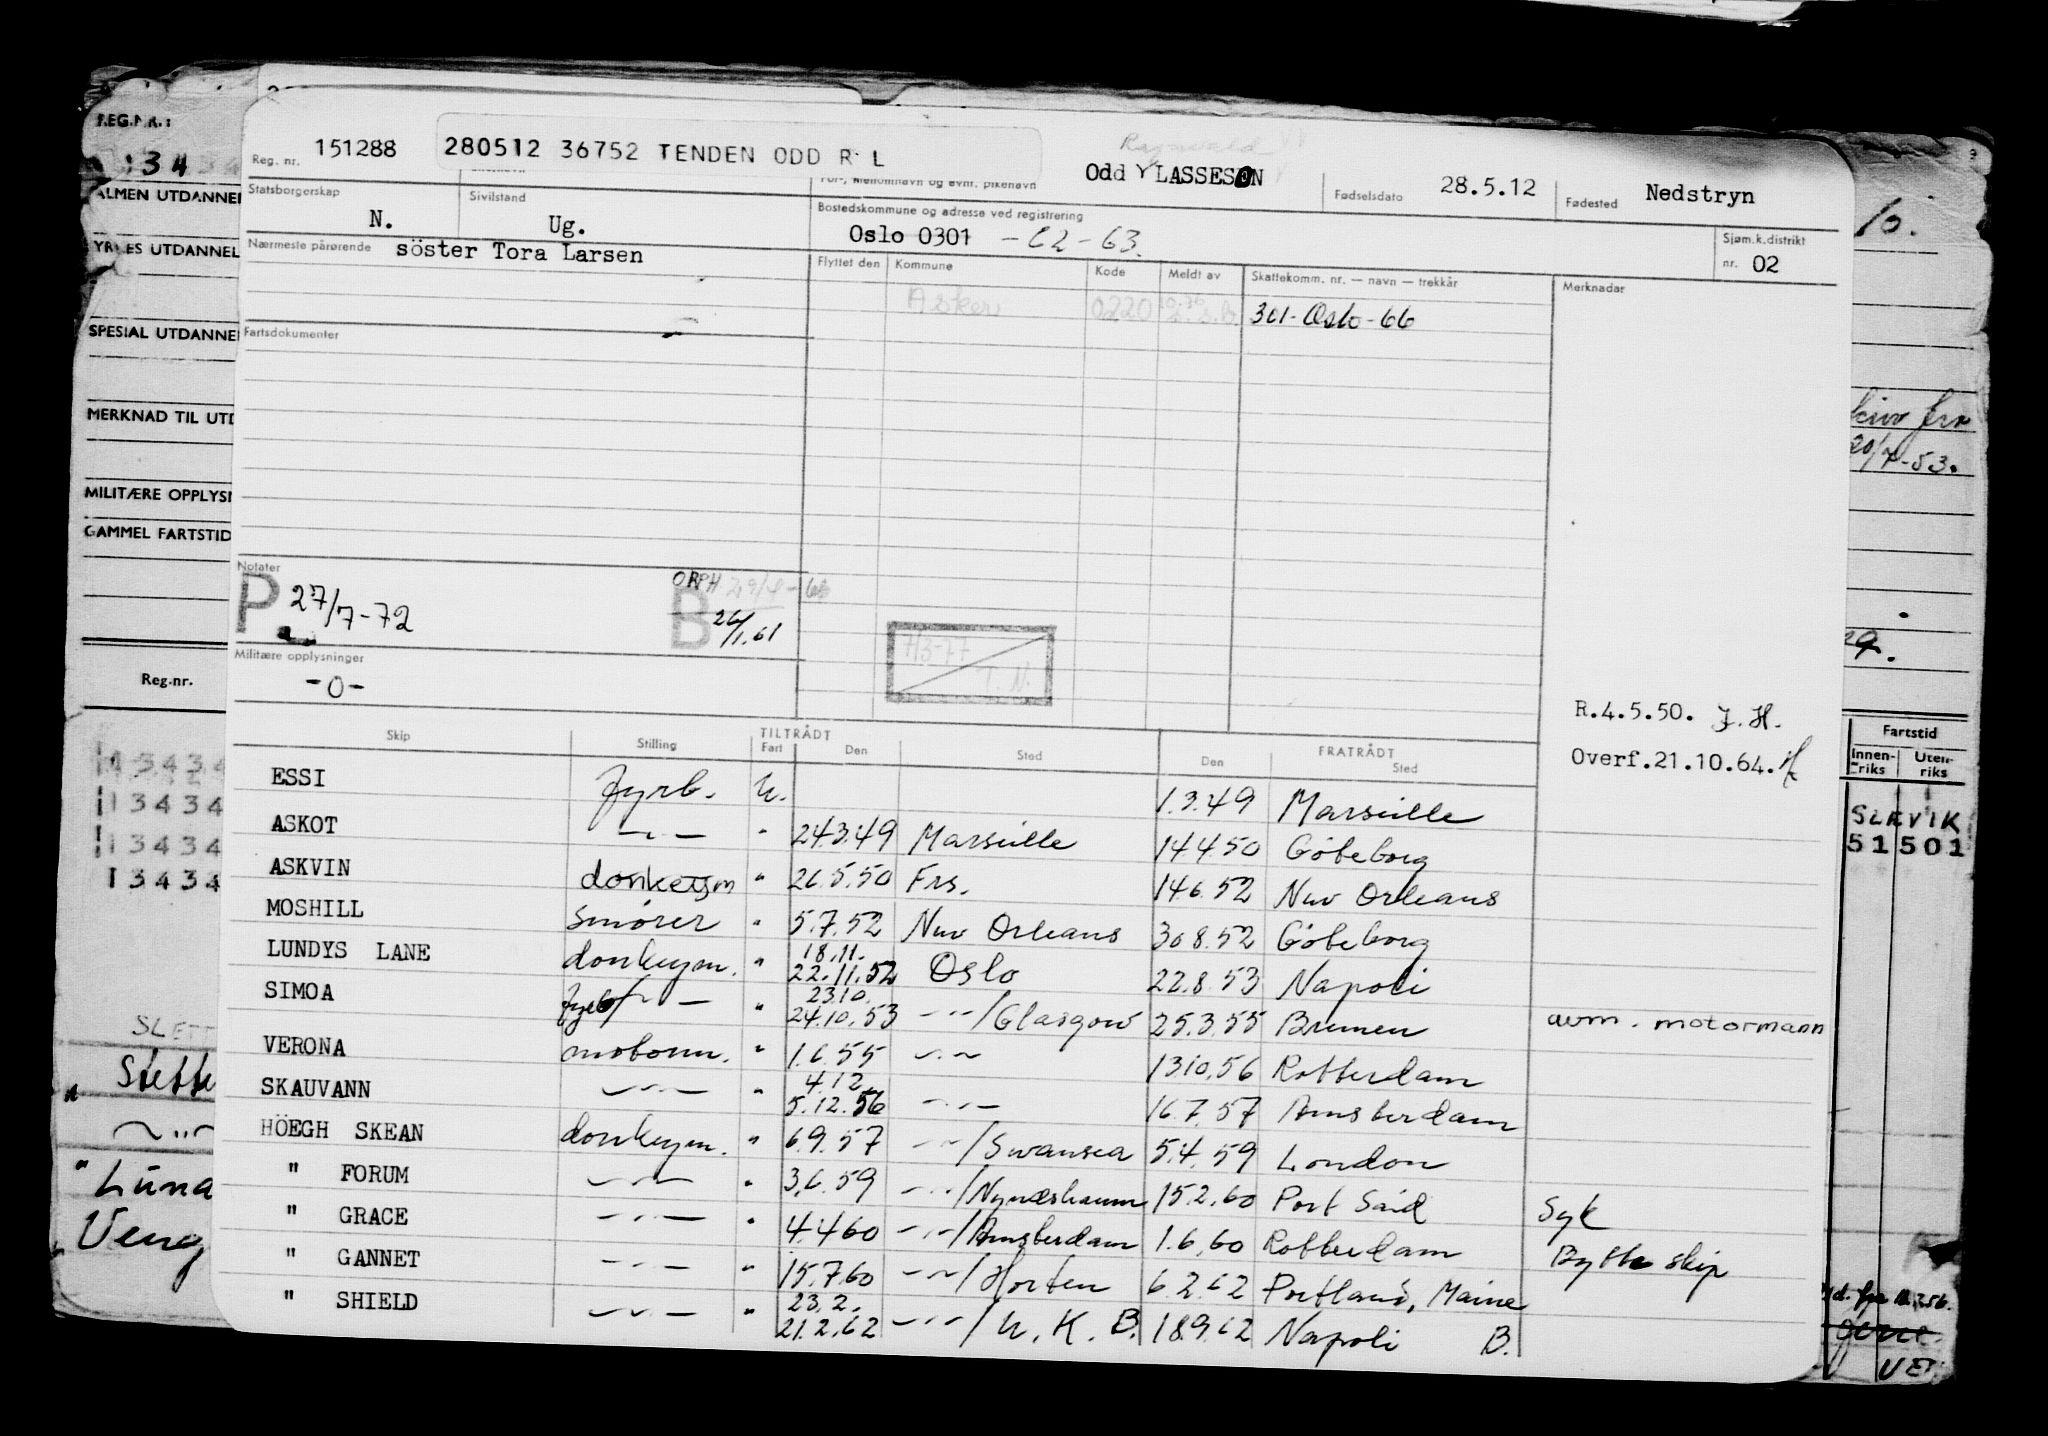 REG.NR.:
34
ALMEN UTDANNEL
YRKES UTDANNEL
SPESIAL UTDANNE
MERKNAD TIL UTD
MILITÆRE OPPLYSN
GAMMEL FARTSTID
Reg.nr.
13434
13434
13434
13434
SLETT
Slette
Reg. nr. 151288 280512 36752 TENDEN ODD R L
For-, mellomnavn og evnt. pikenavn Odd Ragnvald LASSESON
Fødselsdato 28.5.12 Fødested Nedstryn
Statsborgerskap N.
Sivilstand Ug.
Bostedskommune og adresse ved registrering
Oslo 0301 - 62 - 63.
Sjøm.k.distrikt
nr. 02
Nærmeste pårørende söster Tora Larsen
Flyttet den Kommune Kode Meldt av Skattekomm. nr. — navn — trekkår Merknader
Asker 0220 301 - Oslo - 66
Fartsdokumenter
Notater
P 27/7-72
ORPH 29/4-66
B 26/1.61
7/3-77
T. N.
Militære opplysninger
-0-
R.4.5.50. J.H.
Overf.21.10.64.
TILTRÅDT FRATRÅDT
Skip Stilling Fart Den Sted Den Sted
ESSI fyrb. U. 1.3.49 Marseille
ASKOT —"— " 24.3.49 Marseille 14.4.50 Göteborg
ASKVIN donkeym " 26.5.50 Frs. 14.6.52 New Orleans
MOSHILL Smører " 5.7.52 New Orleans 30.8.52 Göteborg
LUNDYS LANE donkeym. " 18.11. 22.11.52 Oslo 22.8.53 Napoli
SIMOA fyrb —"— " 23.10. 24.10.53 —"—/Glasgow 25.3.55 Bremen avm. motormann
VERONA motorm. " 1.6.55 —"— 13.10.56 Rotterdam
SKAUVANN —"— " 4.12. 5.12.56 —"— 16.7.57 Amsterdam
HÖEGH SKEAN donkeym. " 6.9.57 —"—/Swansea 5.4.59 London
" FORUM —"— " 3.6.59 —"—/Nynæshamn 15.2.60 Port Said Syk
" GRACE —"— " 4.4.60 —"—/Amsterdam 1.6.60 Rotterdam Bytte skip
" GANNET —"— " 15.7.60 —"—/Horten 6.2.62 Portland, Maine
" SHIELD —"— " 23.2. 21.2.62 —"—/U.K. B. 18.9.62 Napoli B.
10.
20/7-53.
Fartstid
Innen-riks Uten-riks
SLEVIK
51501